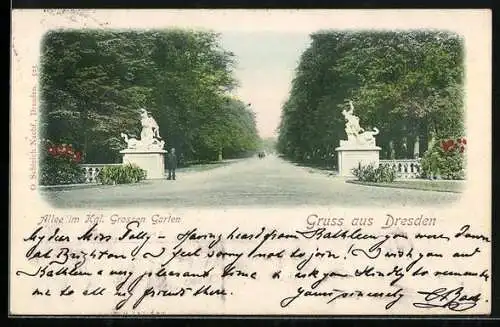 O. Schleich Nachf., Dresden. 525
Allee im Kgl. Grossen Garten
Gruss aus Dresden
My dear Miss Folly - Having heard from Kathleen you were down
at Brighton, I feel sorry not to join! I wish you and
Kathleen a very pleasant time & ask you kindly to remember
me to all my friends there.
Yours sincerely